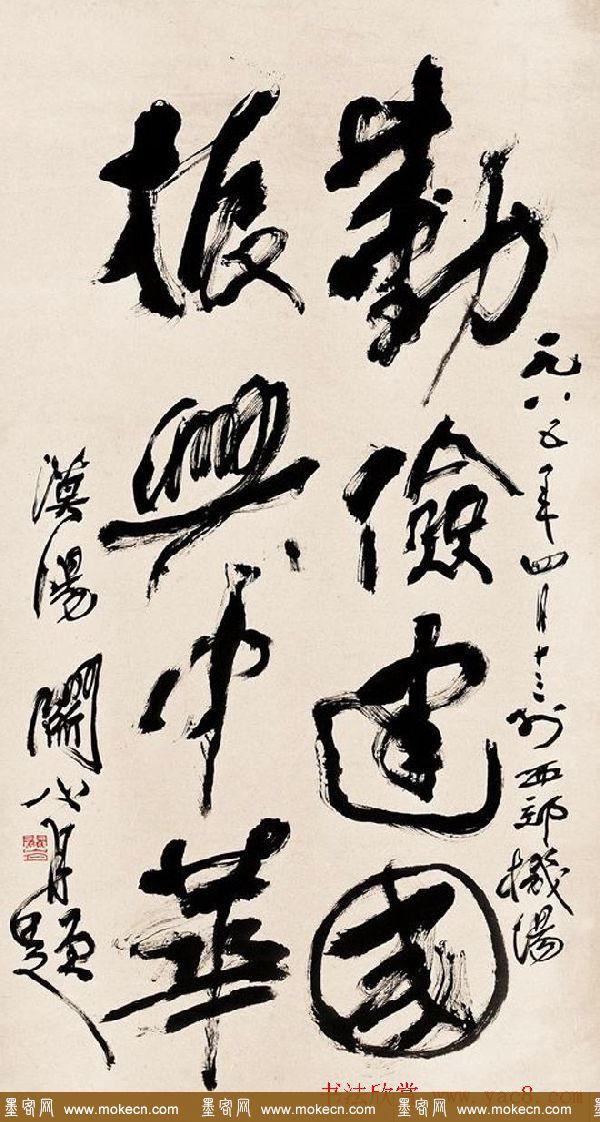 一九八五年四月十三於西郊機場
勤儉建國
振興中華
漠陽關山月題
书法欣赏 www.yac8.com
墨客网 www.mokecn.com 墨客网 www.mokecn.com 墨客网 www.mokecn.com